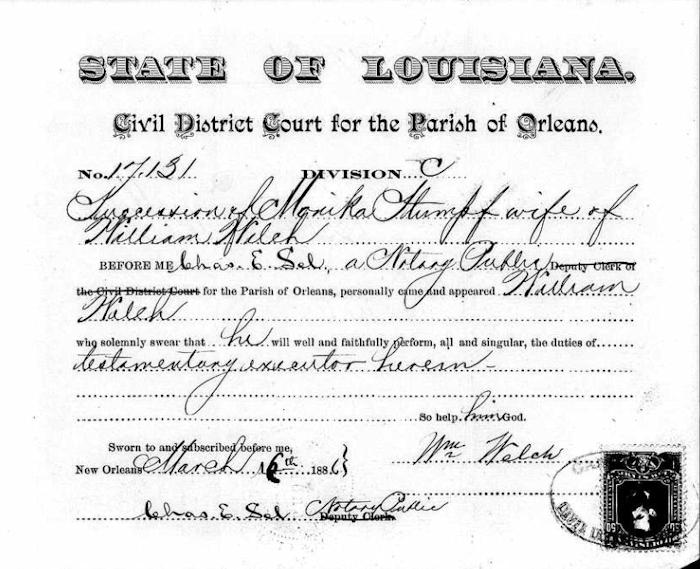 STATE OF LOUISIANA.
Civil District Court for the Parish of Orleans.
No. 17.131 DIVISION C
Succession of Monika Stumpf wife of
William Welsh
BEFORE ME Chas. E. Sel, a Notary Public Deputy Clerk of
the Civil District Court for the Parish of Orleans, personally came and appeared William
Walch
who solemnly swear that he will well and faithfully perform, all and singular, the duties of
testamentary executor herein -
So help him God.
Sworn to and subscribed before me,
Wm Welch
New Orleans March 16th 1886
Chas. E. Sel Notary Public
Deputy Clerk.